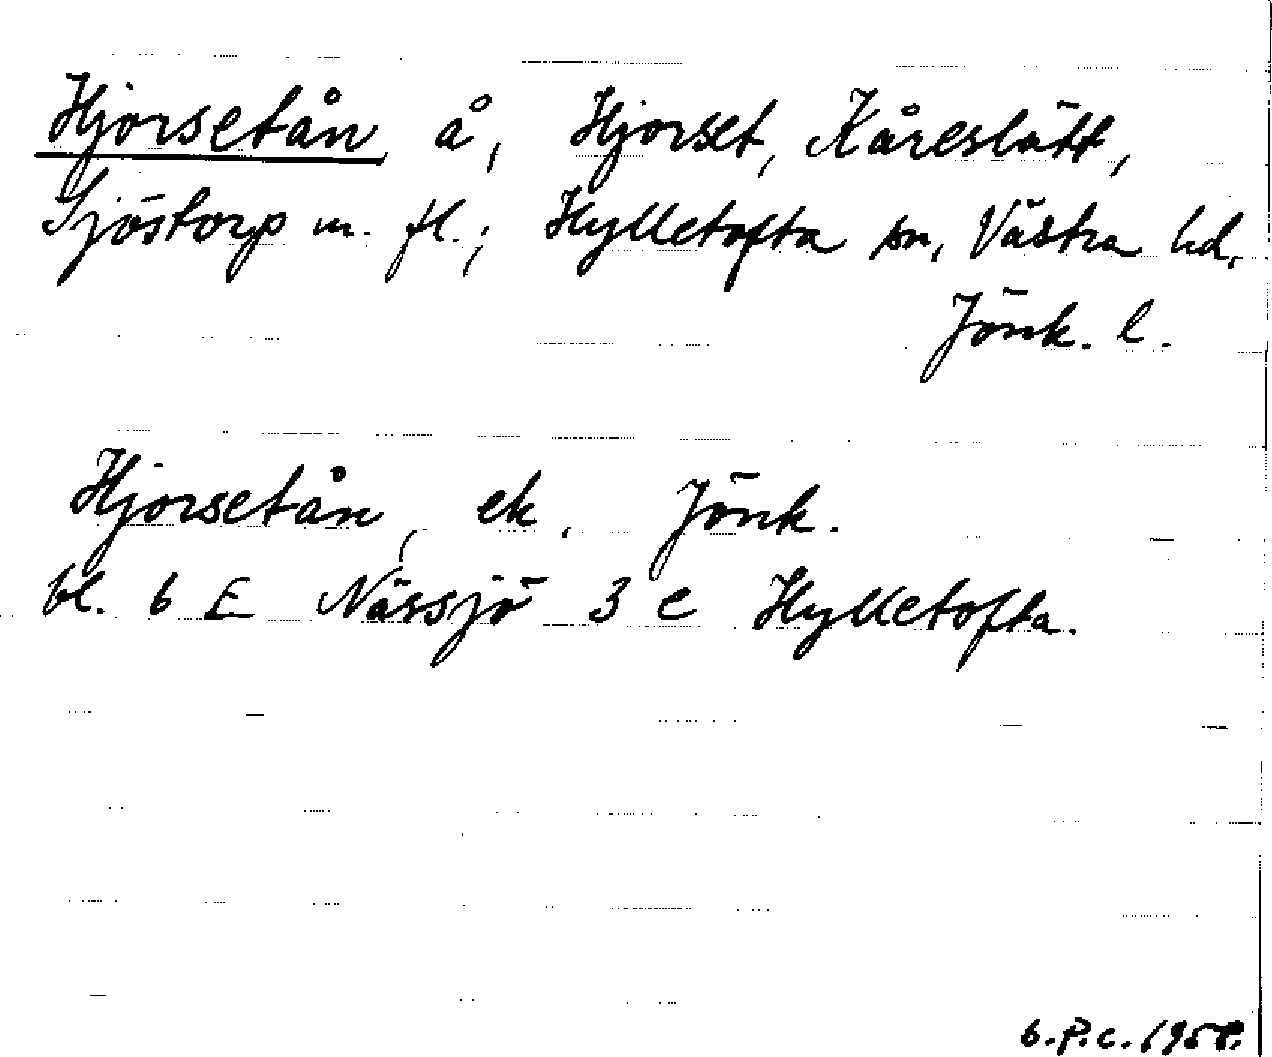 Hjorsetån, å, Hjorset, Kåreslätt,
Sjöstorp m. fl.; Hylletofta sn, Västra hd,
Jönk. l.
Hjorsetån, ek. Jönk.
bl. 6 E Nässjö 3 e Hylletofta.
6.P.C. 1958.